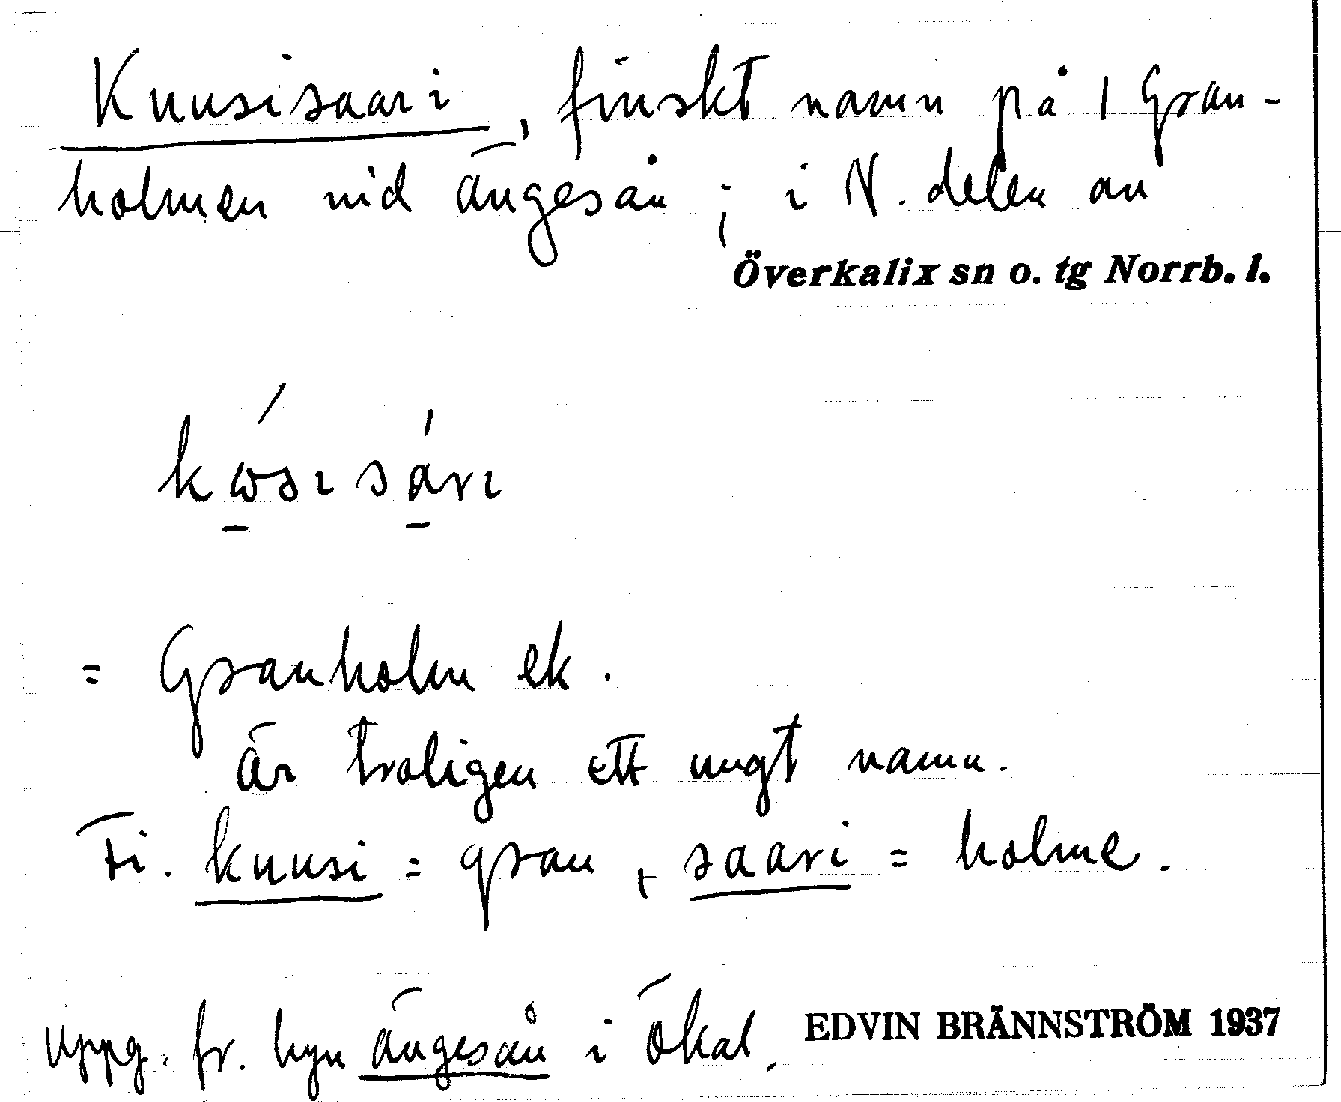 Kuusisaari, finskt namn på 1 Gran-
holmen vid Ängesån; i N. delen av
Överkalix sn o. tg Norrb. l.
kώ̱sɩsá̱rɩ
= Granholm ek.
Är troligen ett ungt namn.
Fi. kuusi = gran, saari = holme.
Uppg. fr. byn Ängesån i Ökal.
EDVIN BRÄNNSTRÖM 1937